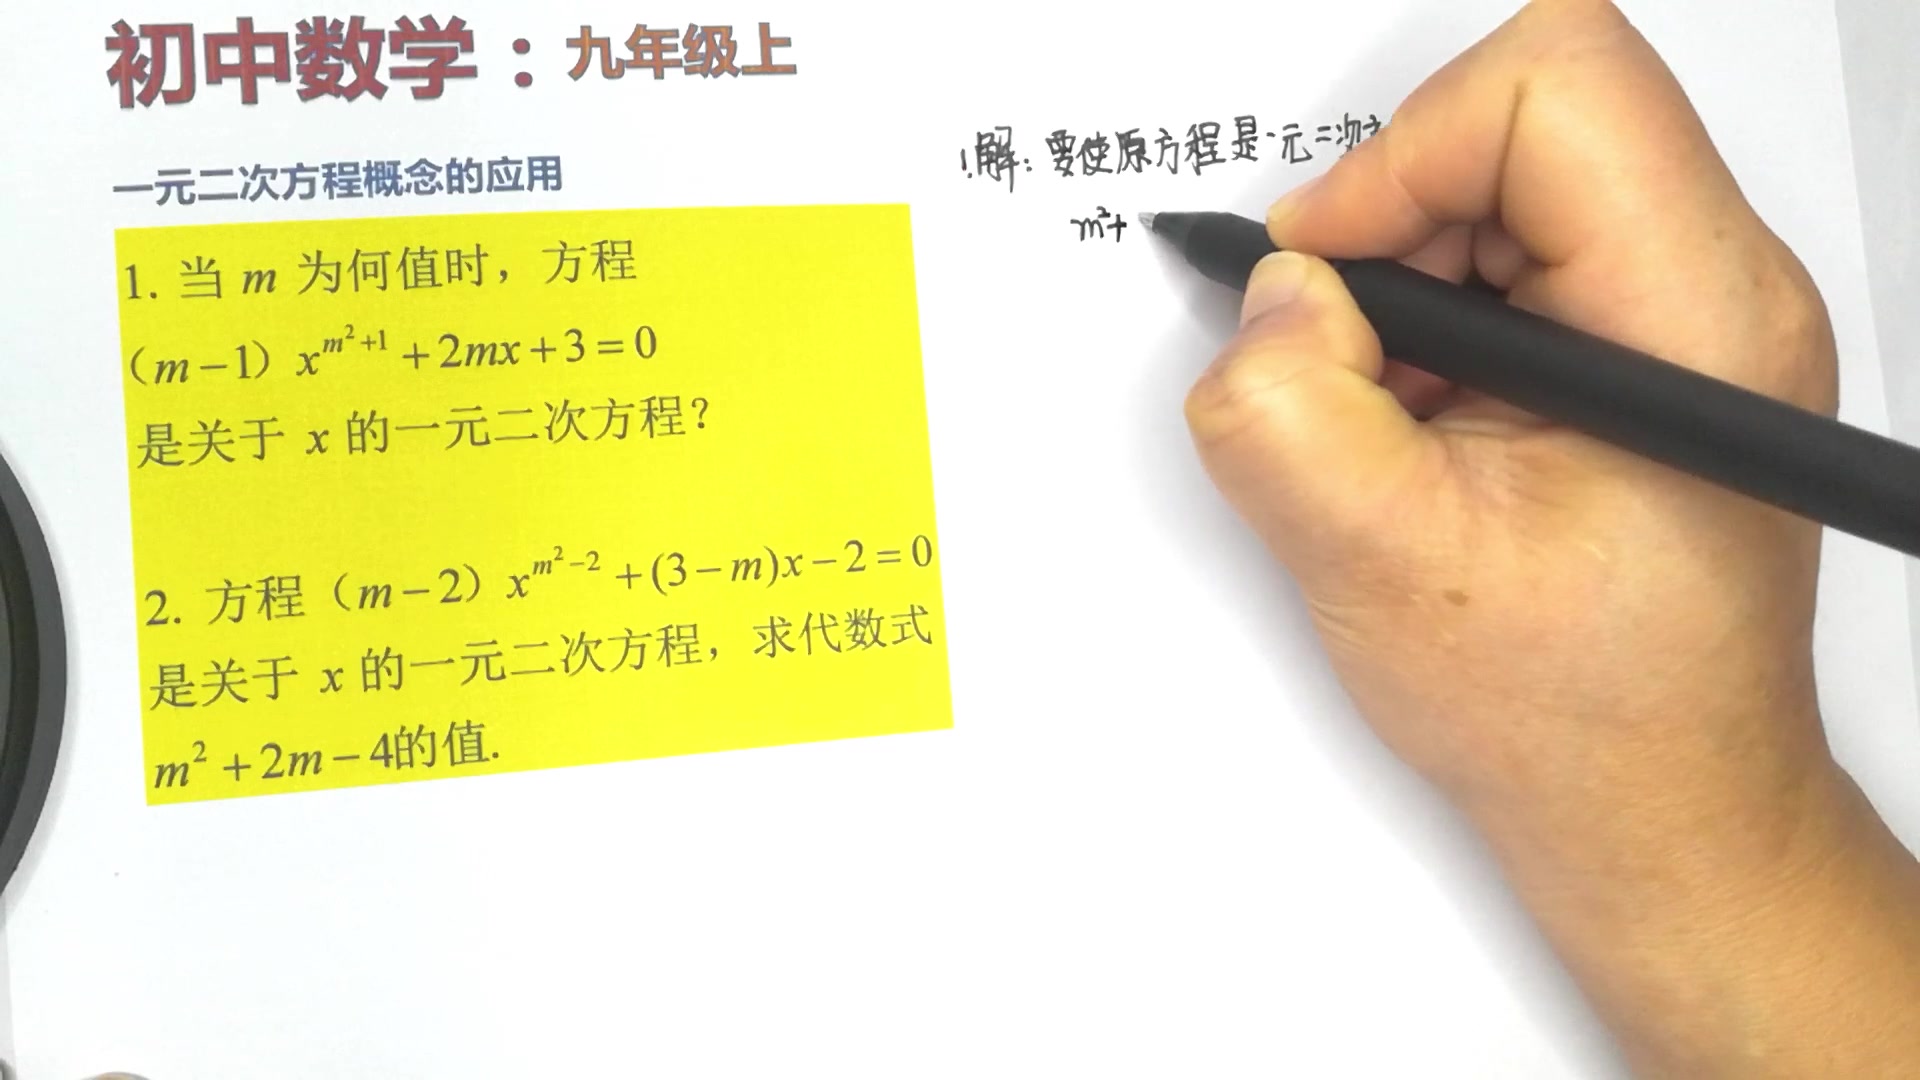 初中数学：九年级上
一元二次方程概念的应用
1. 当 m 为何值时，方程
（m－1）x^{m²+1}＋2mx＋3＝0
是关于 x 的一元二次方程？
2. 方程（m－2）x^{m²－2}＋(3－m)x－2＝0
是关于 x 的一元二次方程，求代数式
m²＋2m－4的值.
1.解：要使原方程是一元二次方
m²+